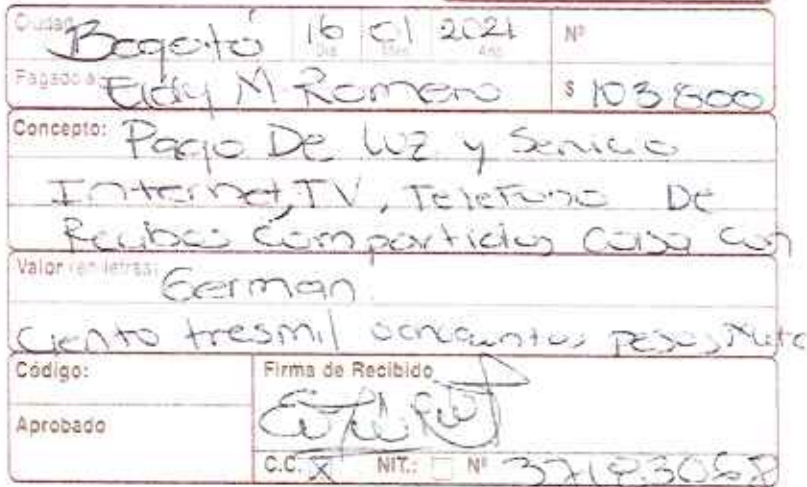 Ciudad: Bogotá 16 01 2021 Nº
Día Mes Año
Pagado a: Eldy M Romero $ 103800
Concepto: Pago De luz y Servicio
Internet, TV, Telefono De
Recibos Compartidos Casa con
Valor (en letras) German
Ciento tresmil ochocientos pesos Mcte
Código: Firma de Recibido
Aprobado
C.C. X NIT.: Nº